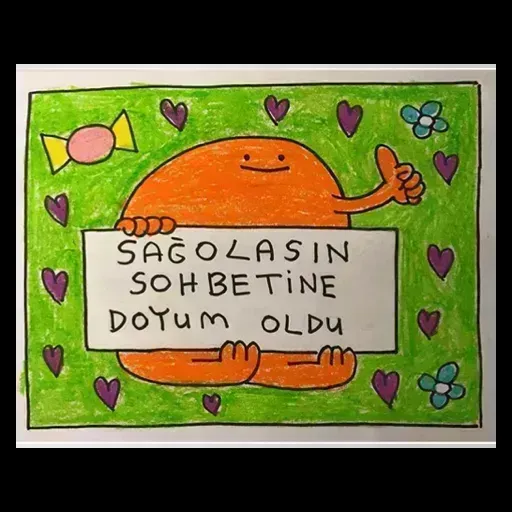 SAĞOLASIN
SOHBETİNE
DOYUM OLDU